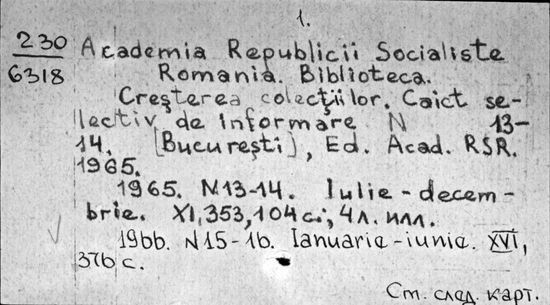 1.
230
6318
Academia Republicii Socialiste
Romania. Biblioteca.
Creşterea colecţiilor. Caiet se-
lectiv de informare N 13-
14. [Bucureşti], Ed. Acad. RSR.
1965.
1965. N13-14. Iulie-decem-
brie. XI, 353, 104 с., 4 л. илл.
1966. N15-16. Ianuarie-iunie. XVI,
376 с.
См. след. карт.